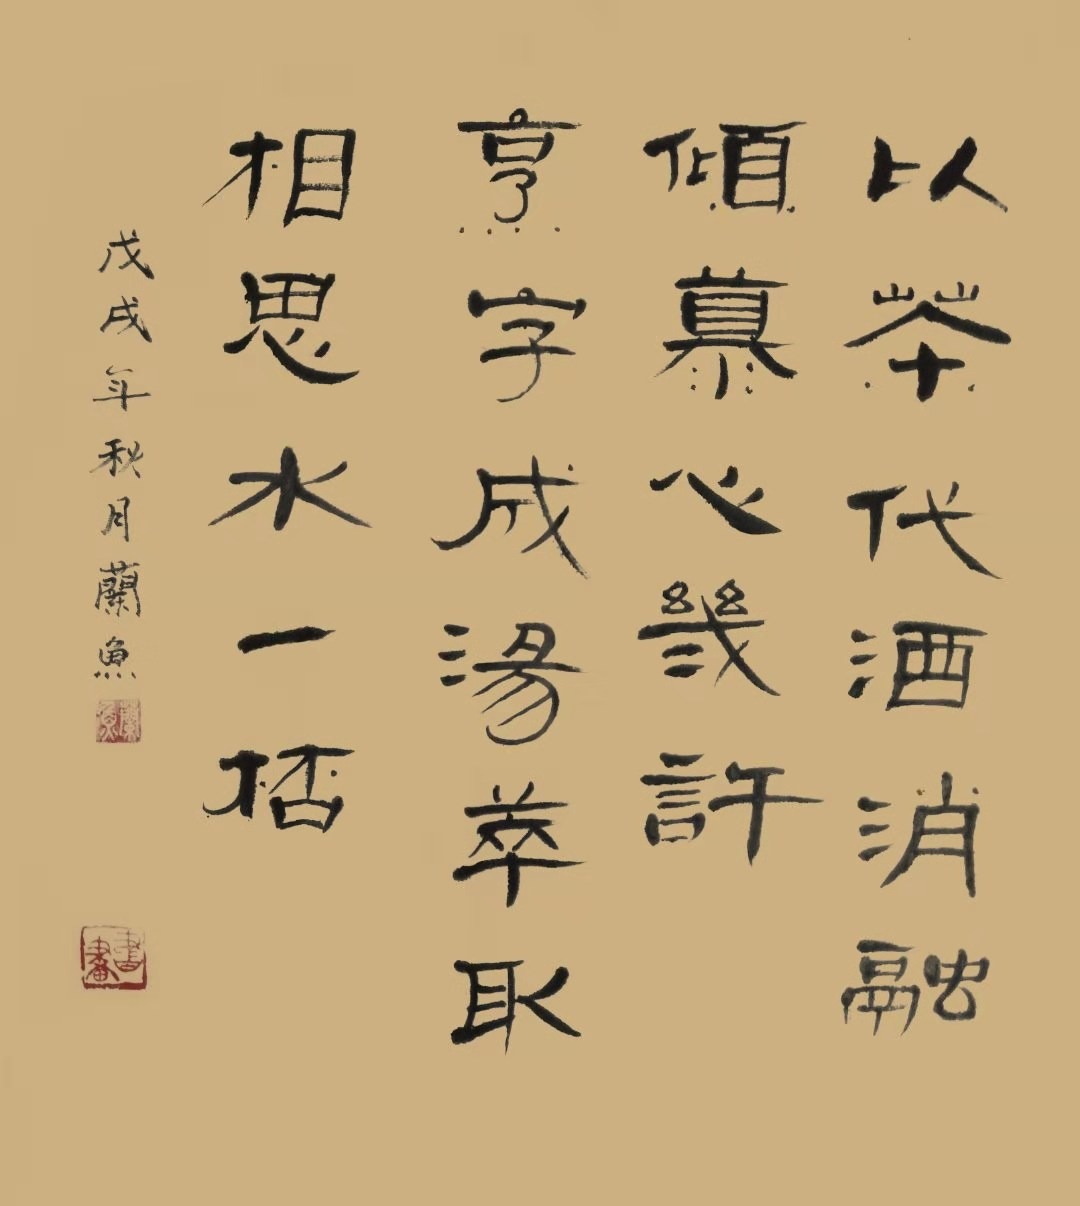 以茶代酒消融
傾慕心幾許
烹字成湯萃取
相思水一桮
戊戌年秋月蘭魚
蘭魚
書畫